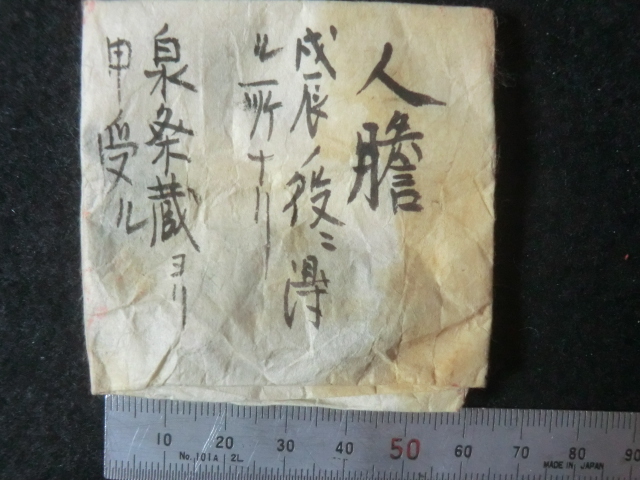 人膽
戊辰ノ役ニ得
ル所ナリ
泉条蔵ヨリ
申受ル
10 20 30 40 50 60 70 80 90
No.101A 2L MADE IN JAPAN